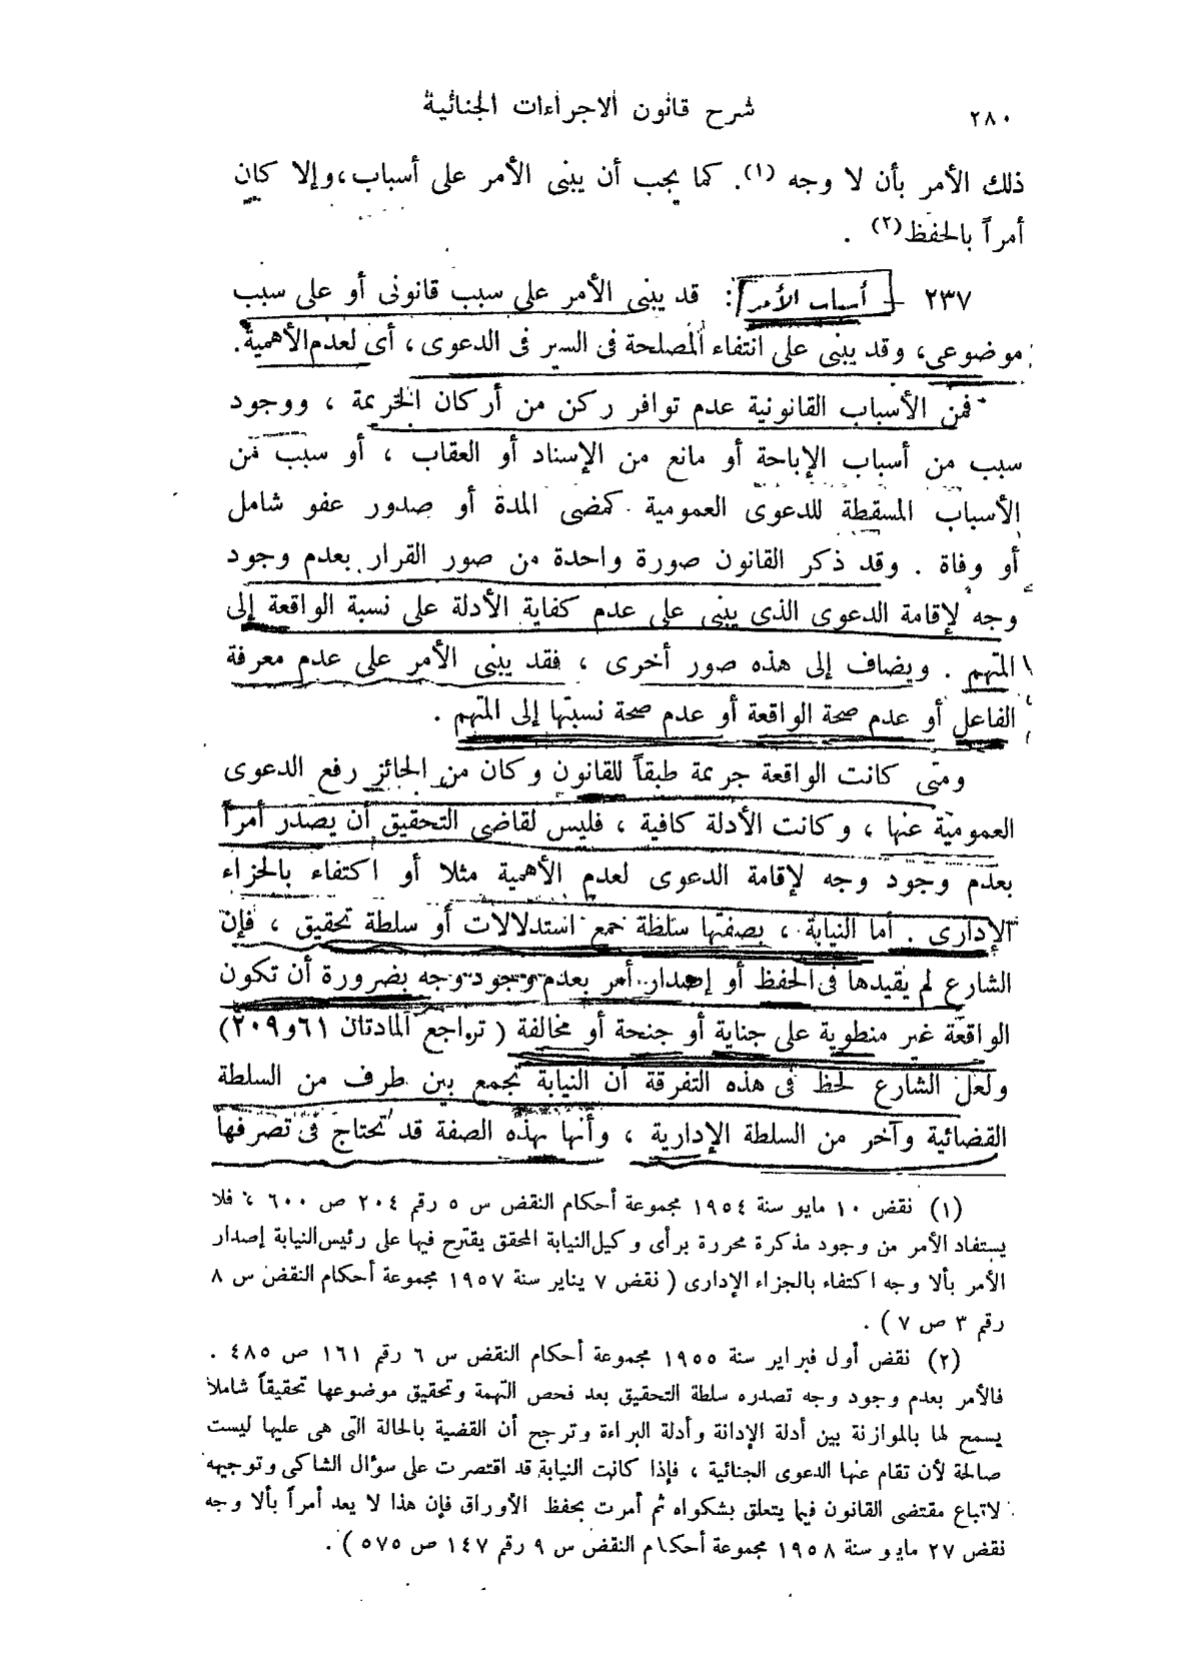 شرح قانون الاجراءات الجنائية
٢٨٠
ذلك الأمر بأن لا وجه (١). كما يجب أن يبنى الأمر على أسباب، وإلا كان
أمراً بالحفظ (٢) .
٢٣٧ – أسباب الأمر : قد يبنى الأمر على سبب قانونى أو على سبب
موضوعى، وقد يبنى على انتفاء المصلحة فى السير فى الدعوى، أى لعدم الأهمية.
فمن الأسباب القانونية عدم توافر ركن من أركان الجريمة ، ووجود
سبب من أسباب الإباحة أو مانع من الإسناد أو العقاب ، أو سبب من
الأسباب المسقطة للدعوى العمومية كمضى المدة أو صدور عفو شامل
أو وفاة . وقد ذكر القانون صورة واحدة من صور القرار بعدم وجود
وجه لإقامة الدعوى الذى يبنى على عدم كفاية الأدلة على نسبة الواقعة إلى
المتهم . ويضاف إلى هذه صور أخرى ، فقد يبنى الأمر على عدم معرفة
الفاعل أو عدم صحة الواقعة أو عدم صحة نسبتها إلى المتهم .
ومتى كانت الواقعة جريمة طبقاً للقانون وكان من الجائز رفع الدعوى
العمومية عنها ، وكانت الأدلة كافية ، فليس لقاضى التحقيق أن يصدر أمراً
بعدم وجود وجه لإقامة الدعوى لعدم الأهمية مثلا أو اكتفاء بالجزاء
الإدارى . أما النيابة ، بصفتها سلطة جمع استدلالات أو سلطة تحقيق ، فإن
الشارع لم يقيدها فى الحفظ أو إصدار أمر بعدم وجود وجه بضرورة أن تكون
الواقعة غير منطوية على جناية أو جنحة أو مخالفة ( تراجع المادتان ٦١ و ٢٠٩)
ولعل الشارع لحظ فى هذه التفرقة أن النيابة تجمع بين طرف من السلطة
القضائية وآخر من السلطة الإدارية ، وأنها بهذه الصفة قد تحتاج فى تصرفها
(١) نقض ١٠ مايو سنة ١٩٥٤ مجموعة أحكام النقض س ٥ رقم ٢٠٤ ص ٦٠٠ ، فلا
يستفاد الأمر من وجود مذكرة محررة برأى وكيل النيابة المحقق يقترح فيها على رئيس النيابة إصدار
الأمر بألا وجه اكتفاء بالجزاء الإدارى ( نقض ٧ يناير سنة ١٩٥٧ مجموعة أحكام النقض س ٨
رقم ٣ ص ٧ ) .
(٢) نقض أول فبراير سنة ١٩٥٥ مجموعة أحكام النقض س ٦ رقم ١٦١ ص ٤٨٥ .
فالأمر بعدم وجود وجه تصدره سلطة التحقيق بعد فحص التهمة وتحقيق موضوعها تحقيقاً شاملا
يسمح لها بالموازنة بين أدلة الإدانة وأدلة البراءة وترجح أن القضية بالحالة التى هى عليها ليست
صالحة لأن تقام عنها الدعوى الجنائية ، فإذا كانت النيابة قد اقتصرت على سؤال الشاكى وتوجيهه
لاتباع مقتضى القانون فيما يتعلق بشكواه ثم أمرت بحفظ الأوراق فإن هذا لا يعد أمراً بألا وجه
نقض ٢٧ مايو سنة ١٩٥٨ مجموعة أحكام النقض س ٩ رقم ١٤٧ ص ٥٧٥ ) .